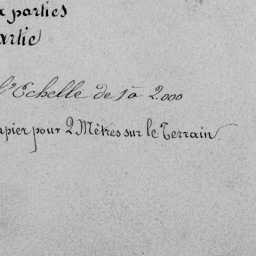 x parties
artie
l'Echelle de 1 à 2.000
apier pour 2 Mètres sur le Terrain